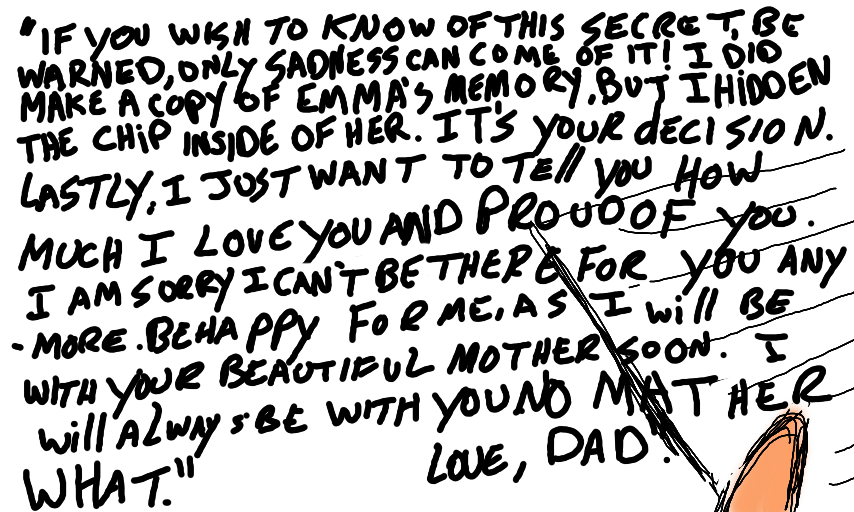 "IF YOU WISH TO KNOW OF THIS SECRET, BE
WARNED, ONLY SADNESS CAN COME OF IT! I DID
MAKE A COPY OF EMMA'S MEMORY, BUT I HIDDEN
THE CHIP INSIDE OF HER. IT'S YOUR dECISION.
LASTLY, I JUST WANT TO TEll YOU HOW
MUCH I LOVE YOU AND PROUD OF YOU.
I AM SORRY I CAN'T BE THERE FOR YOU ANY
-MORE. BE HAPPY FOR ME, AS I will BE
WITH YOUR BEAUTIFUL MOTHER SOON. I
will ALWAYS BE WITH YOU NO MATHER
WHAT."
LOVE, DAD.